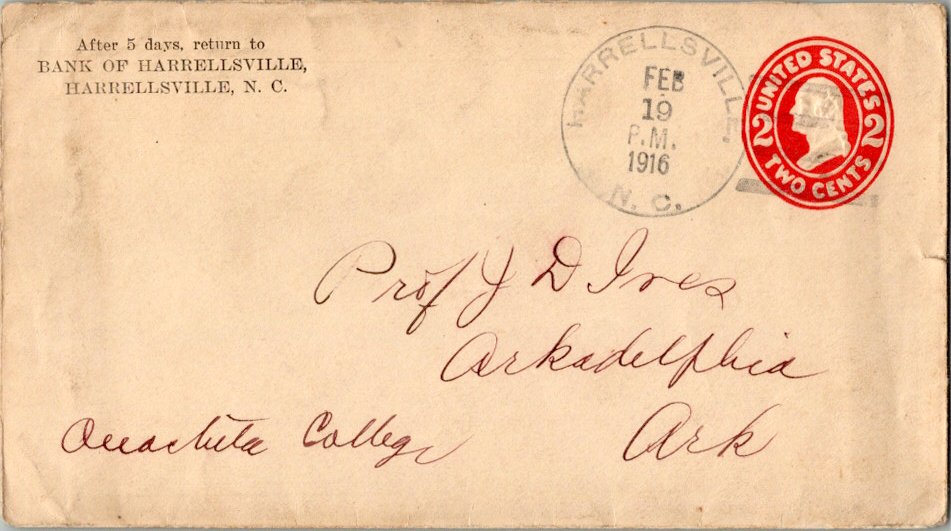 After 5 days, return to
BANK OF HARRELLSVILLE,
HARRELLSVILLE, N. C.
HARRELLSVILLE,
FEB
19
P.M.
1916
N. C.
UNITED STATES
2 2
TWO CENTS
Prof J D Ives
Arkadelphia
Ouachita College Ark